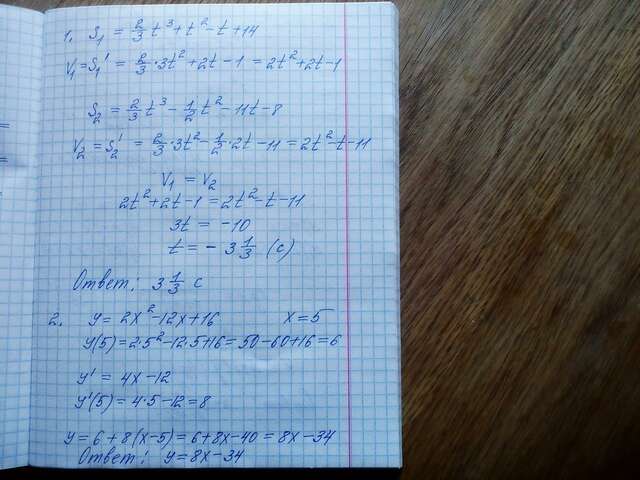 1. S₁ = 2/3 t³ + t² - t + 14
V₁ = S₁' = 2/3 · 3t² + 2t - 1 = 2t² + 2t - 1
S₂ = 2/3 t³ - 1/2 t² - 11t - 8
V₂ = S₂' = 2/3 · 3t² - 1/2 · 2t - 11 = 2t² - t - 11
V₁ = V₂
2t² + 2t - 1 = 2t² - t - 11
3t = -10
t = - 3 1/3 (c)
Ответ: 3 1/3 c
2. y = 2x² - 12x + 16 x = 5
y(5) = 2·5² - 12·5 + 16 = 50 - 60 + 16 = 6
y' = 4x - 12
y'(5) = 4·5 - 12 = 8
y = 6 + 8(x - 5) = 6 + 8x - 40 = 8x - 34
Ответ: y = 8x - 34